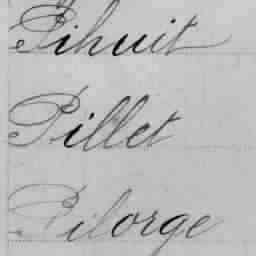 Pihuit
Pillet
Pilorge